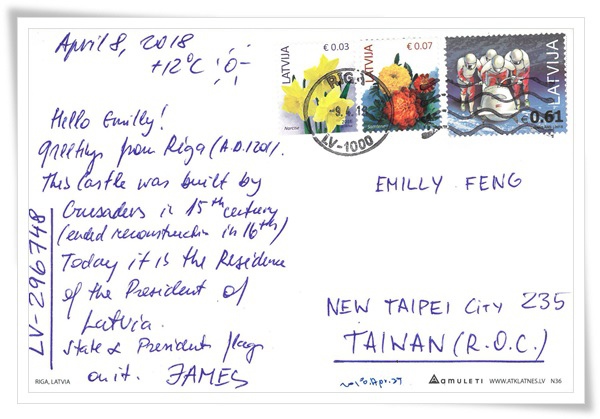 April 8, 2018
+12°C
Hello Emilly!
Greetings from Riga (A.D. 1201).
This Castle was built by
Crusaders in 15th century
(ended reconstruction in 16th)
Today it is the Residence
of the President of
Latvia.
State & Presidents flags
on it. JAMES
LV-296748
RIGA, LATVIA
LATVIJA
€ 0.03
Narcise
LATVIJA
€ 0.07
LATVIJA
€ 0.61
RIGA
LV-1000
EMILLY FENG
NEW TAIPEI CITY 235
TAIWAN (R.O.C.)
amuleti WWW.ATKLATNES.LV N36